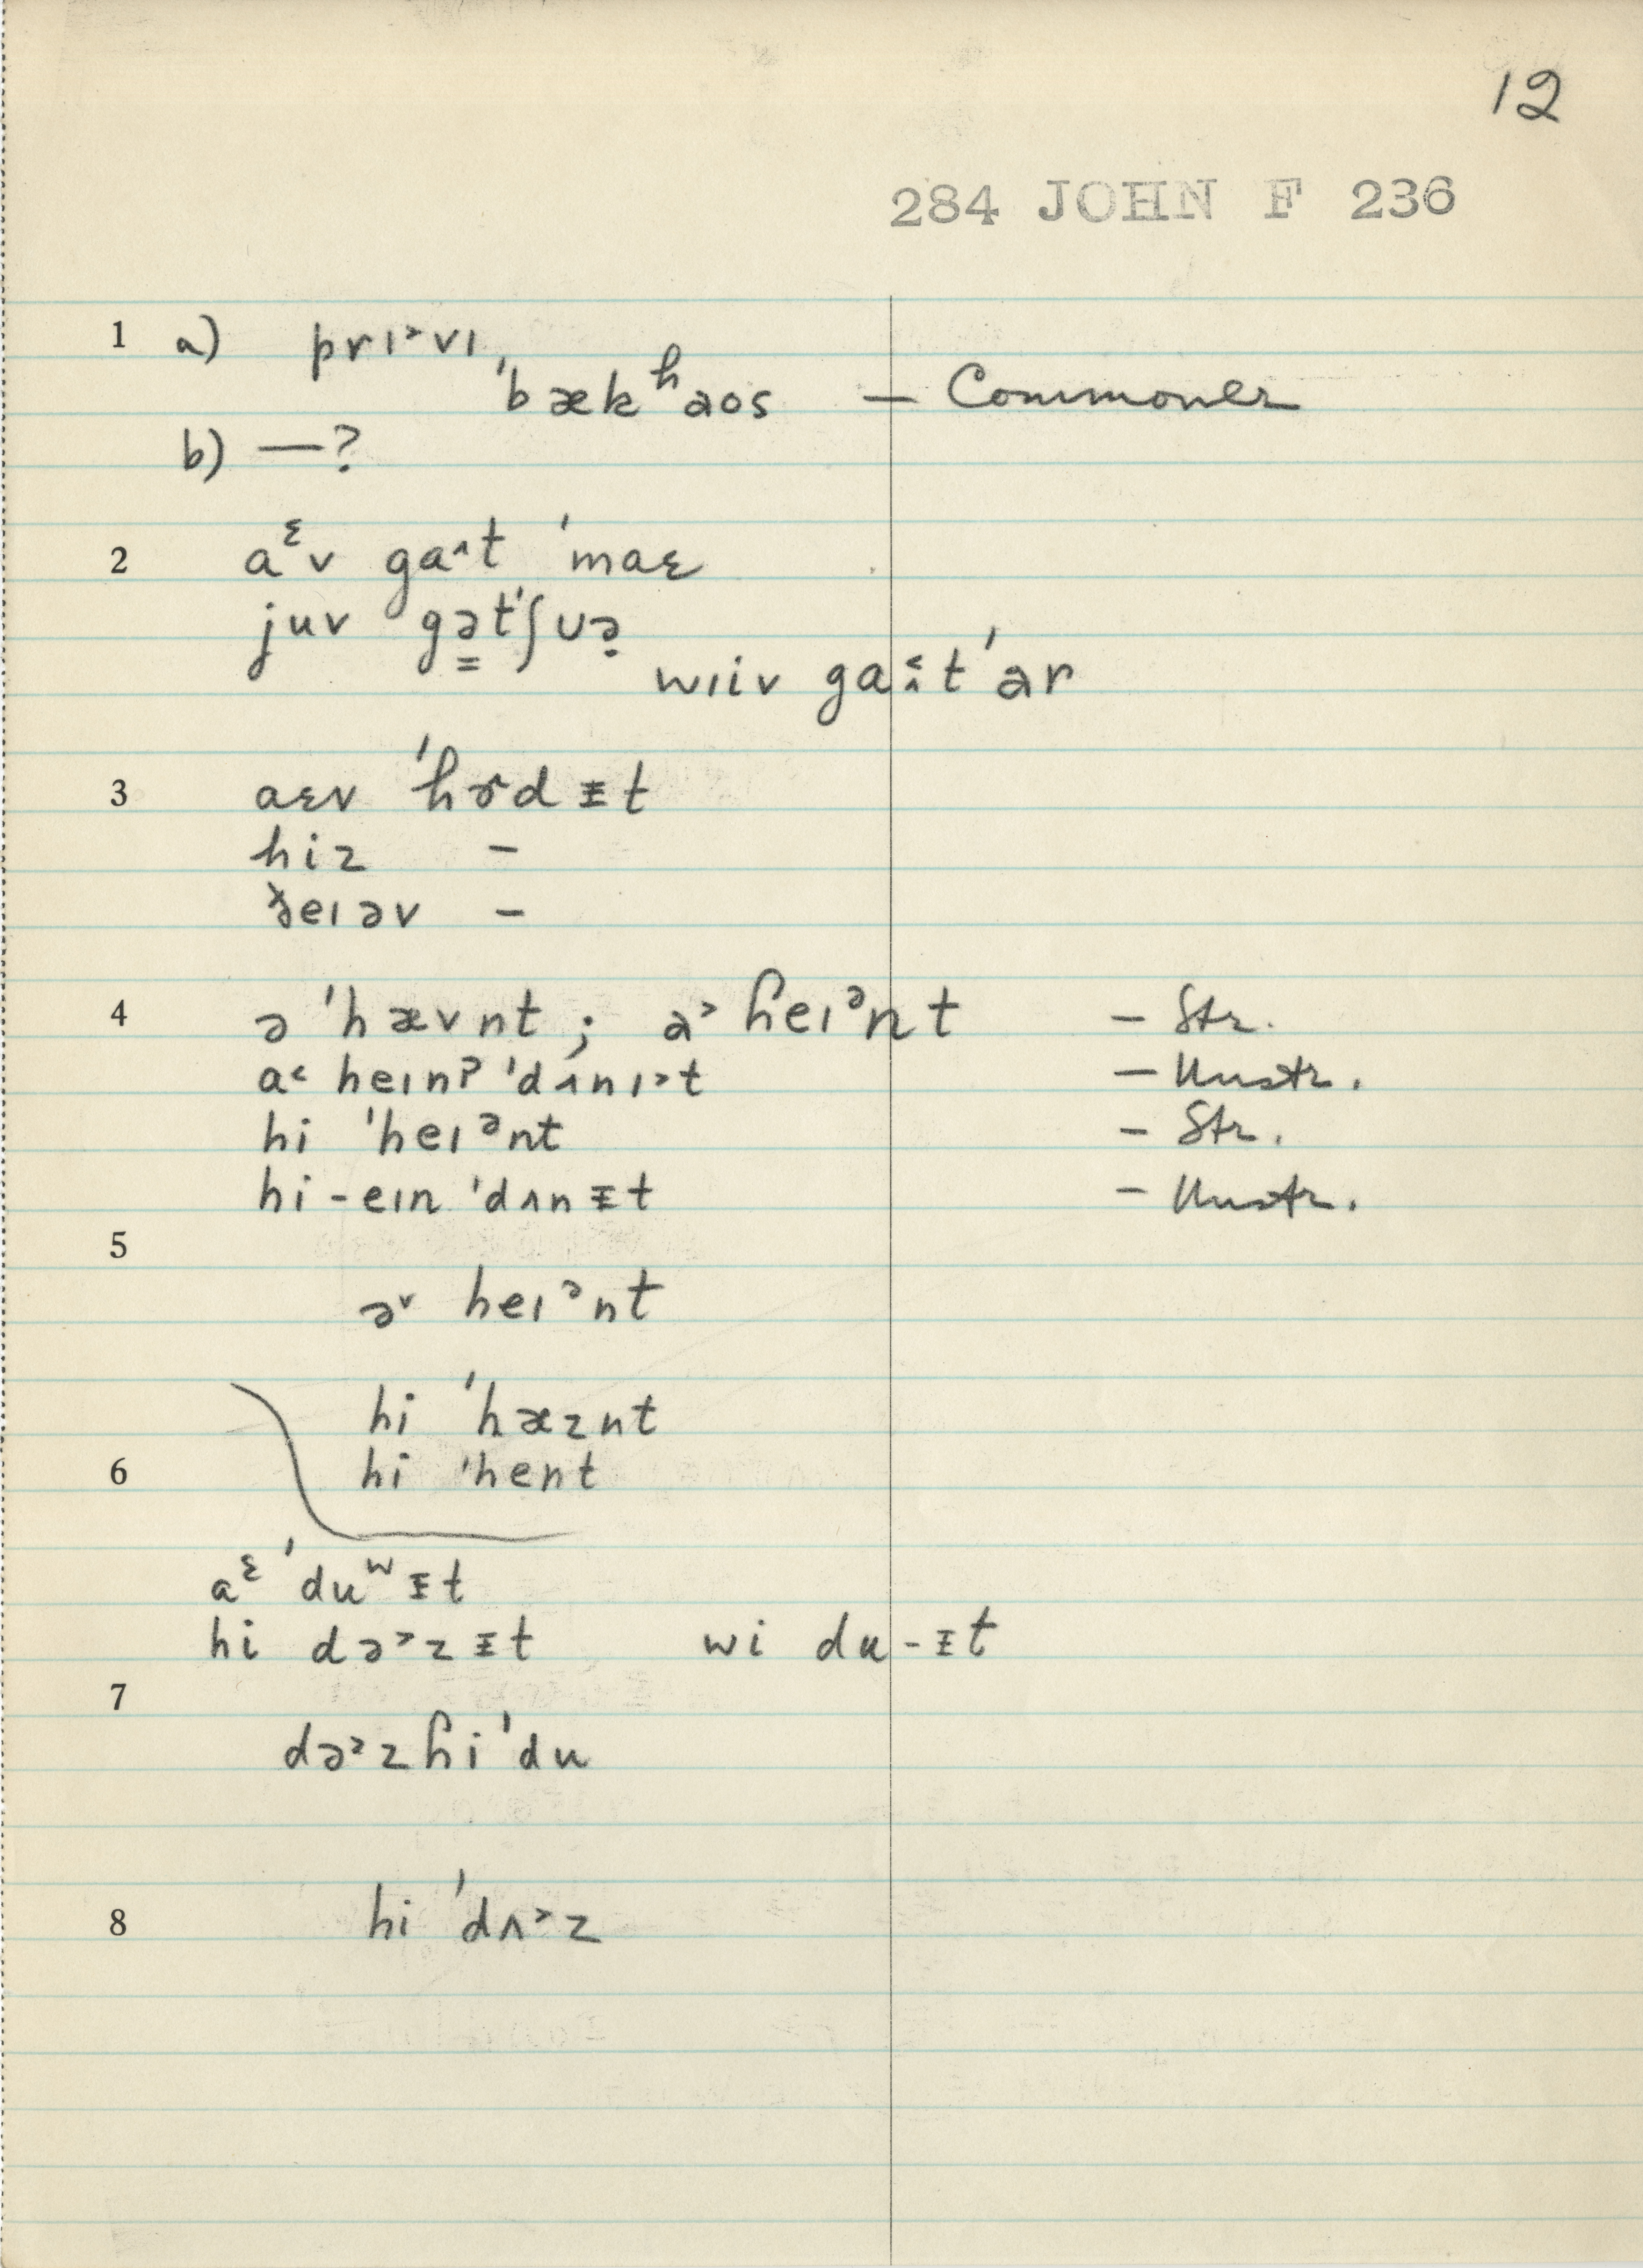 12
284 JOHN F 236
1 a) prɪ˃vɪ,
ˈbækʰaos — Commoner
b) —?
2 aᵋv ga˄t ˈmaɛ
juv gə̳tˈʃʊə̣
wɪiv ga˂˄t ˈar
3 aɛv ˈhɝdᵻt
hiz –
ðeɪəv –
4 ə ˈhævnt ; a˃ heɪᵊnt – Str.
a˂ heɪnʔ ˈdʌnɪ˃t – Unstr.
hi ˈheɪᵊnt – Str.
hi-eɪn ˈdʌnᵻt – Unstr.
5
ə˅ heɪᵊnt
hi ˈhæznt
6 hi ˈhent
aᵋ ˈduʷᵻt
hi də˃zᵻt wi du-ᵻt
7
də˃zhiˈdu
8 hi ˈdʌ˃z